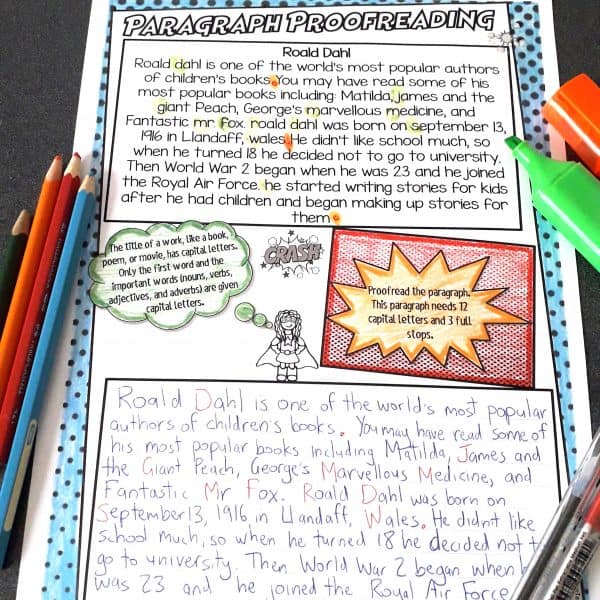 PARAGRAPH PROOFREADING
Roald Dahl
Roald dahl is one of the world's most popular authors
of children's books.You may have read some of his
most popular books including: Matilda, james and the
giant Peach, George's marvellous medicine, and
Fantastic mr. Fox. roald dahl was born on september 13,
1916 in Llandaff, wales.He didn't like school much, so
when he turned 18 he decided not to go to university.
Then World War 2 began when he was 23 and he joined
the Royal Air Force. he started writing stories for kids
after he had children and began making up stories for
them.
The title of a work, like a book,
poem, or movie, has capital letters.
Only the first word and the
important words (nouns, verbs,
adjectives, and adverbs) are given
capital letters.
CRASH
Proofread the paragraph.
This paragraph needs 12
capital letters and 3 full
stops.
Roald Dahl is one of the world's most popular
authors of children's books. You may have read some of
his most popular books including Matilda, James and
the Giant Peach, George's Marvellous Medicine, and
Fantastic Mr Fox. Roald Dahl was born on
September 13, 1916 in Llandaff, Wales. He didn't like
school much, so when he turned 18 he decided not t
go to university. Then World War 2 began when h
was 23 and he joined the Royal Air Force